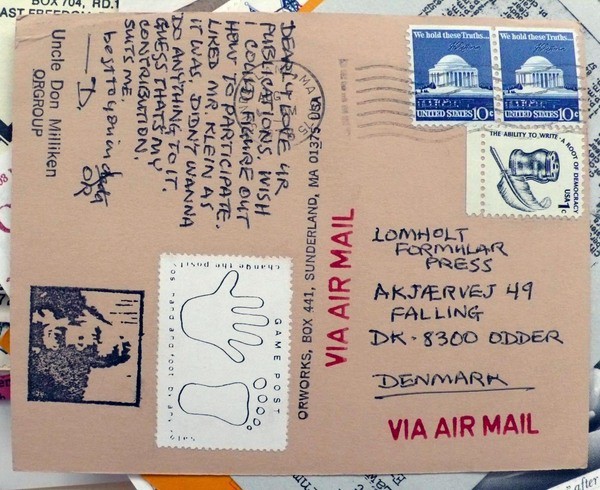 BOX 704, RD.1
We hold these Truths...
We hold these Truths...
UNITED STATES 10c
UNITED STATES 10c
THE ABILITY TO WRITE · A ROOT OF DEMOCRACY
USA 1c
DEARLY LOVE UR
PUBLICATIONS. WISH
I COULD FIGURE OUT
HOW TO PARTICIPATE.
LIKED MR. KLEIN AS
IT WAS, DIDN'T WANNA
DO ANYTHING TO IT.
GUESS THAT'S MY
CONTRIBUTION.
SUITS ME.
—D,
best to you
OR
Uncle Don Milliken
ORGROUP
ORWORKS, BOX 441, SUNDERLAND, MA 01375 USA
VIA AIR MAIL
LOMHOLT
FORMULAR
PRESS
AKJÆRVEJ 49
FALLING
DK-8300 ODDER
DENMARK
VIA AIR MAIL
GAME POST
change the posit
after